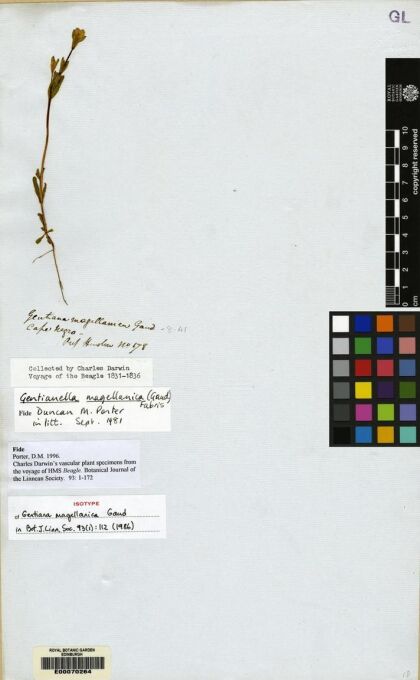 GL
ROYAL BOTANIC GARDEN EDINBURGH
0 1 2 3 4 5 6 7 8 9 10
cm
copyright reserved
Gentiana magellanica Gaud
Cape Negro
Prof Henslow No 578
Collected by Charles Darwin
Voyage of the Beagle 1831-1836
Gentianella magellanica (Gaud)
Fabris
Fide Duncan M. Porter
in litt. Sept. 1981
Fide
Porter, D.M. 1996.
Charles Darwin's vascular plant specimens from
the voyage of HMS Beagle. Botanical Journal of
the Linnean Society. 93: 1-172
ISOTYPE
of Gentiana magellanica Gaud
in Bot. J. Linn. Soc. 93(1): 112 (1986)
ROYAL BOTANIC GARDEN
EDINBURGH
E00070264